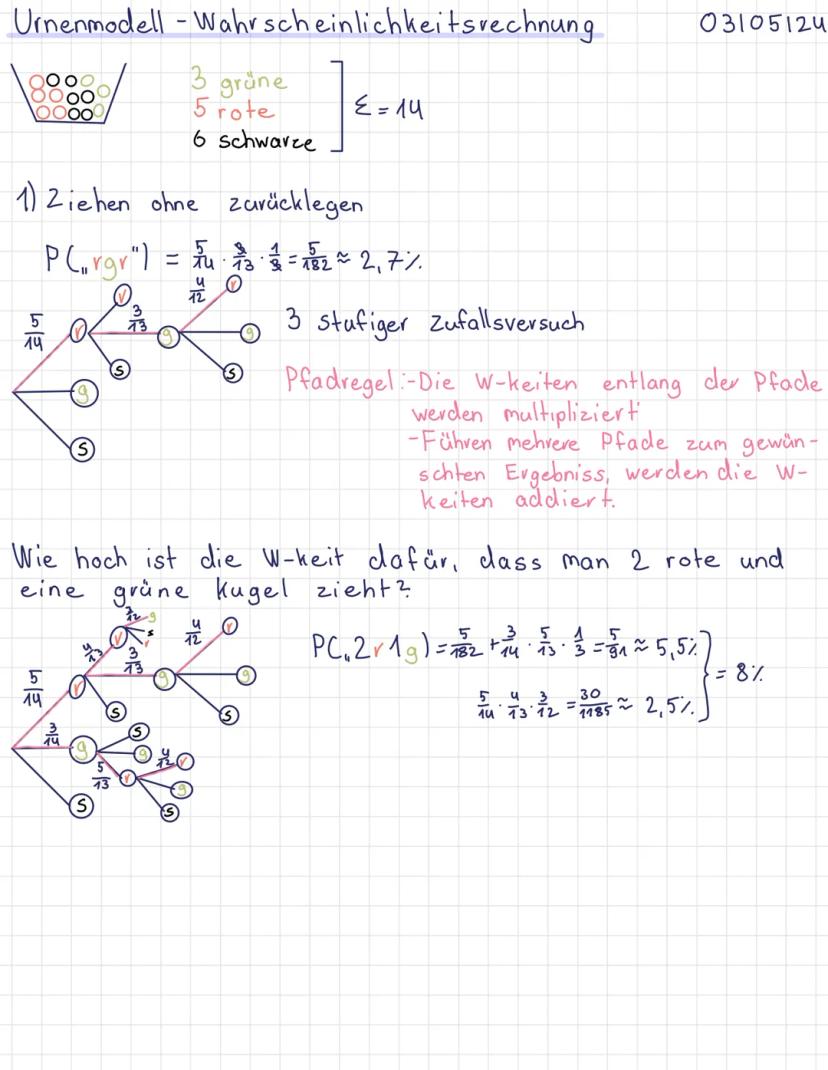 Urnenmodell - Wahrscheinlichkeitsrechnung 03105124
3 grüne
5 rote
6 schwarze
Σ = 14
1) Ziehen ohne zurücklegen
P(„rgr") = 5/14 · 3/13 · 1/3 = 5/182 ≈ 2,7%
5/14 r r 3/13 g 4/12 r g s
s
g
s
3 stufiger Zufallsversuch
Pfadregel: - Die W-keiten entlang der Pfade
werden multipliziert
- Führen mehrere Pfade zum gewün-
schten Ergebniss, werden die W-
keiten addiert.
Wie hoch ist die W-keit dafür, dass man 2 rote und
eine grüne Kugel zieht?
5/14 r 4/13 r 3/12 g s r
3/13 g 4/12 r g s
s
3/14 g s g 5/13 r 4/12 r g s
s
P(„2r1g) = 5/182 + 3/14 · 5/13 · 1/3 = 5/91 ≈ 5,5%
5/14 · 4/13 · 3/12 = 30/1185 ≈ 2,5%
= 8%